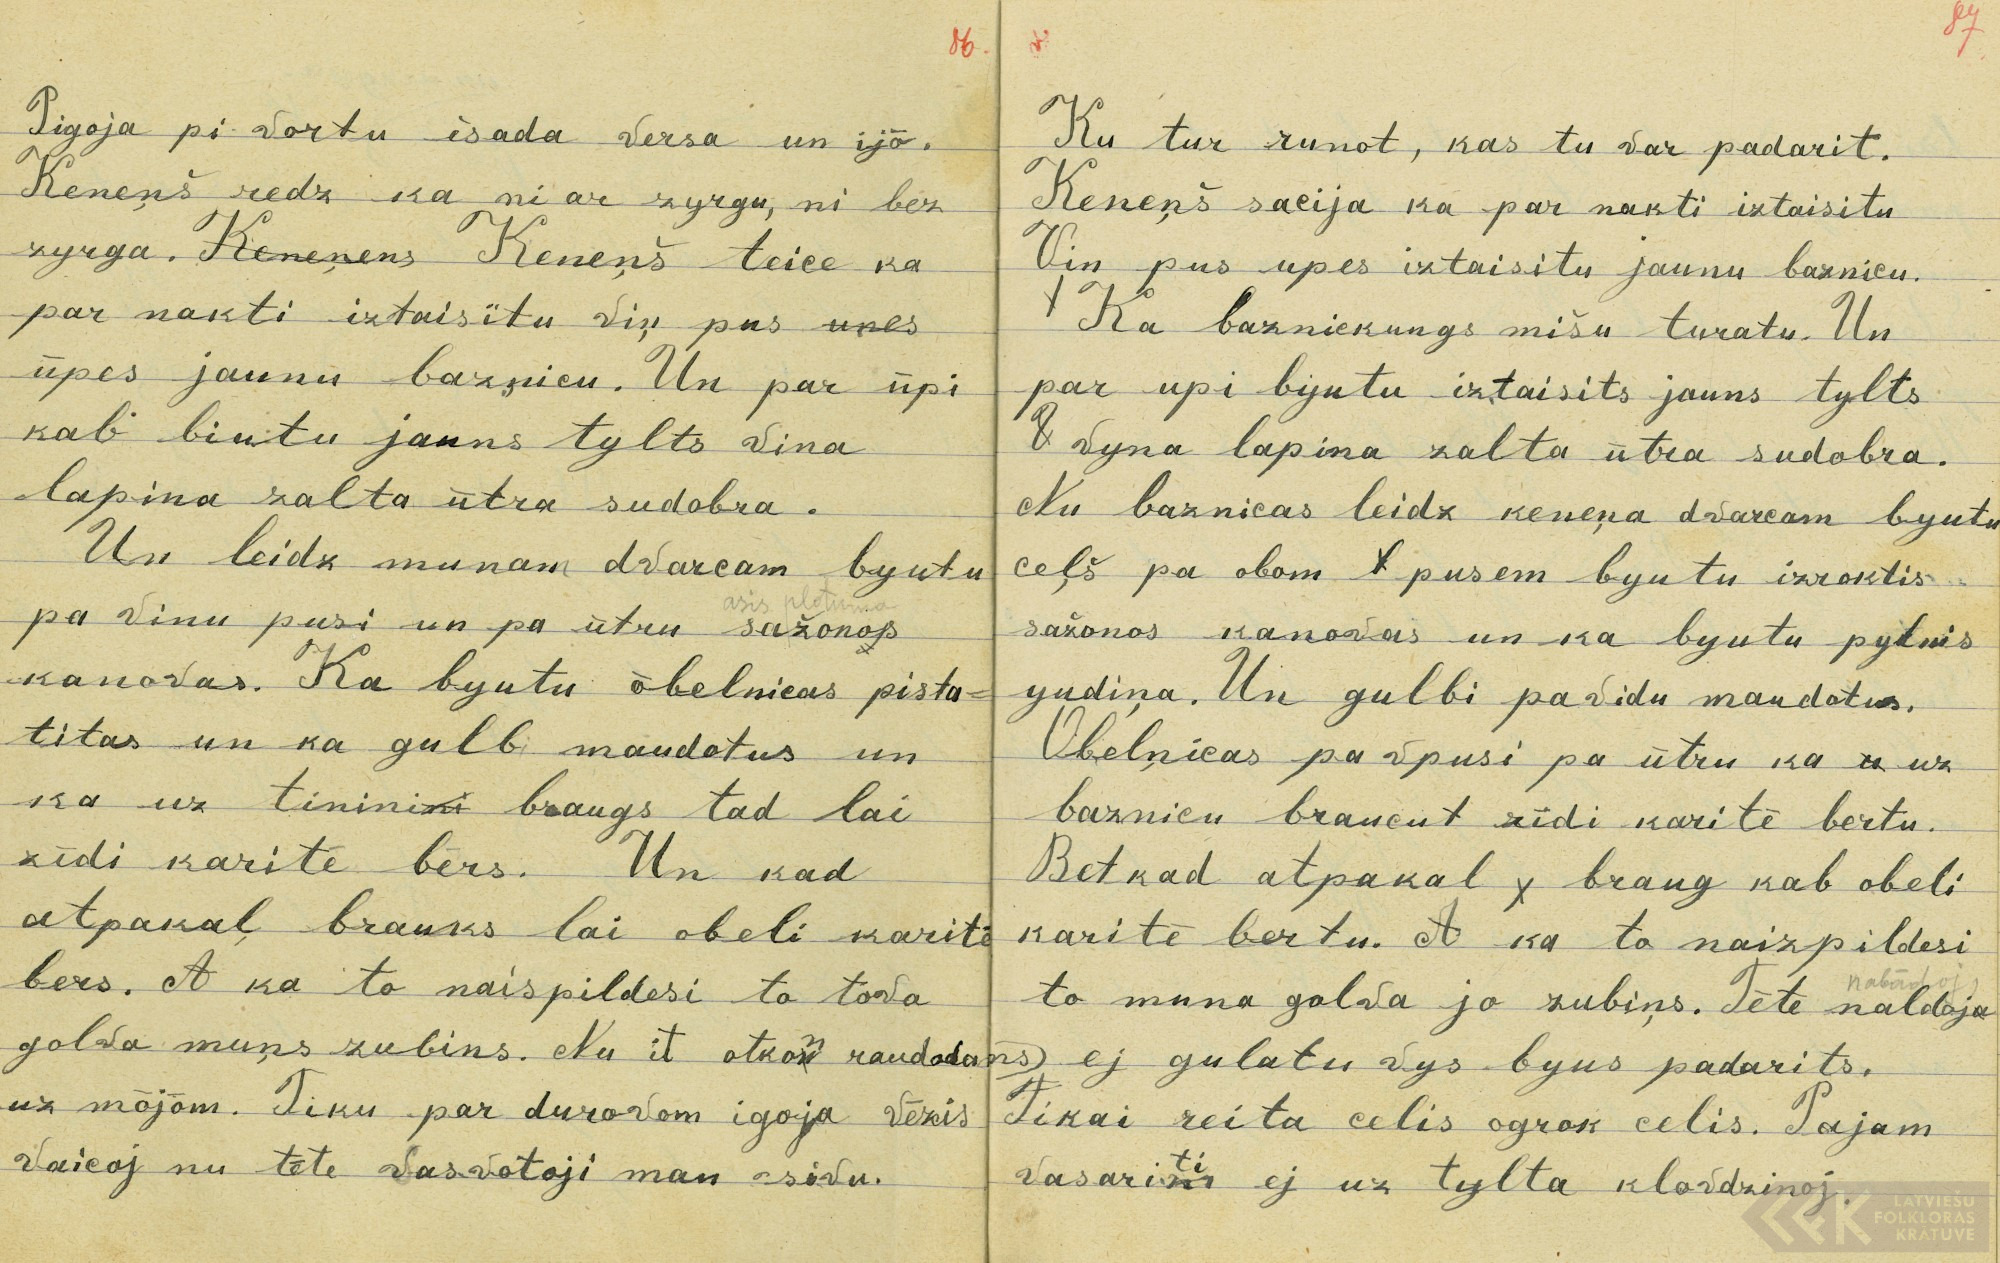 86.
Pigoja pi vortu īsada versa un ijō.
Keneņš redz ka ni ar zyrgu, ni bez
zyrga. Keneņens Keneņš teice ka
par nakti iztaisītu viņ pus unes
ūpes jaunu bazņicu. Un par ūpi
kab biutu jauns tylts vina
lapina zalta ūtra sudobra.
Un leidz munam dvarcam byutu
asis plotuma
pa vinu pusi un pa ūtru sažonos
kanovas. Ka byutu ōbelnicas pista-
titas un ka gulb maudotus un
ka uz tinini braugs tad lai
zīdi karitē bērs. Un kad
atpakaļ brauks lai obeli karitē
bers. A ka to naispildesi to tova
golva muņs zubins. Nu it otkon raudodams)
uz mōjōm. Tiku par durovom igoja vēzis
vaicoj nu tēte vasvotoji man sivu.
87
Ku tur runot, kas tu var padarit.
Keneņš sacija ka par nakti iztaisitu
Vin pus upes iztaisitu jaunu baznicu.
Ka baznickungs mišu turatu. Un
par upi byutu iztaisits jauns tylts
vyna lapina zalta ūtra sudobra.
Nu baznicas leidz keneņa dvarcam byutu
ceļš pa obom pusem byutu izroktis
sažonos kanovas un ka byutu pylnis
yudiņa. Un gulbi pa vidu maudotus.
Obeļnicas pa vpusi pa ūtru ka uz
baznicu braucut zīdi karitē bertu.
Bet kad atpakal braug kab obeli
karitē bertu. A ka to naizpildesi
nabādoj,
to muna golva jo zubiņs. Tēte naldoja
ej gulatu vys byus padarits.
Tikai reita celis ogrok celis. Pajam
vasariti ej uz tylta klovdzinoj.
LATVIEŠU
FOLKLORAS
KRĀTUVE